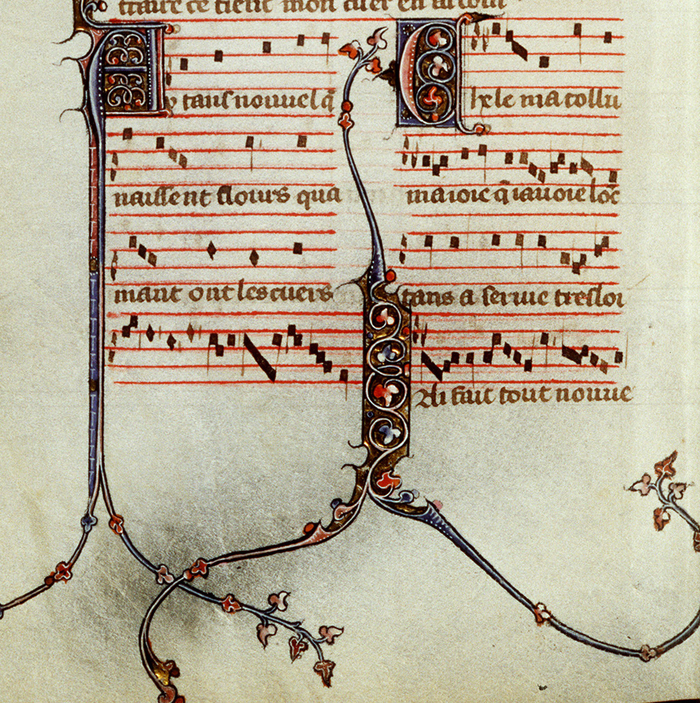 ttaire ce tient mon cuer en la tour
y tans nouuel q̃
naissent flours qua
mant ont les cuers
Hele ma collu
ma ioie q̃ iauoie loc
tans a seruie tresloi
Ai fait tout nouue